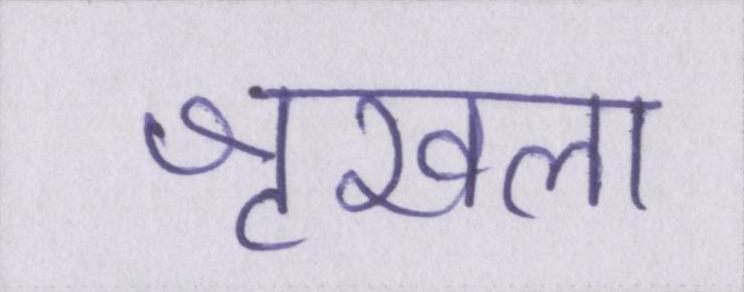 शृखला